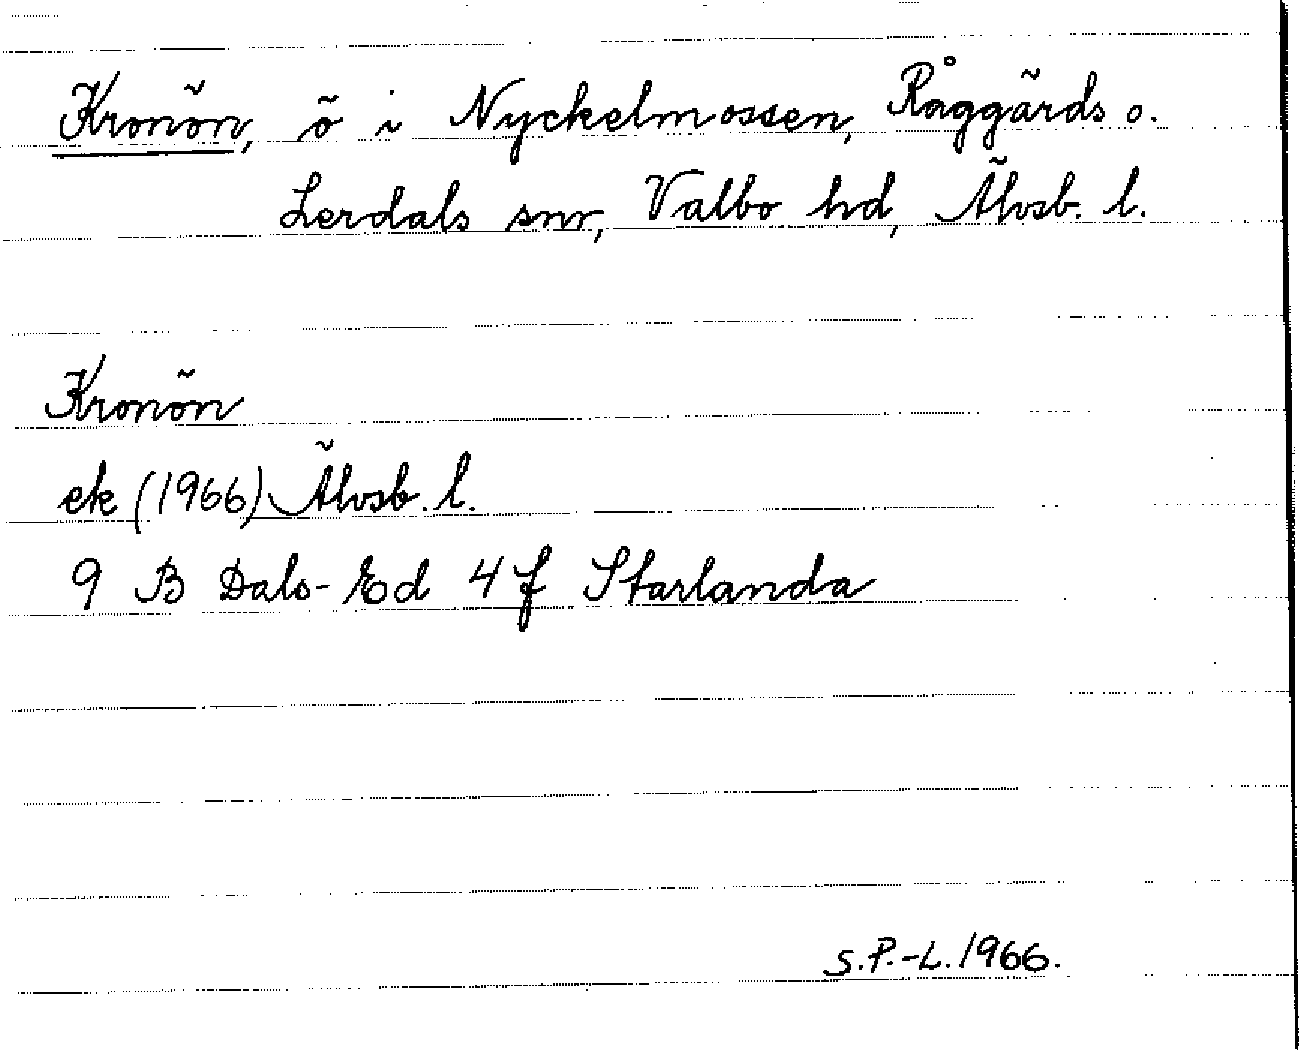 Kronön, ö i Nyckelmossen, Råggärds o.
Lerdals snr, Valbo hd, Älvsb. l.
Kronön
ek (1966) Älvsb. l.
9 B Dals-Ed 4 f Starlanda
S.P.-L. 1966.